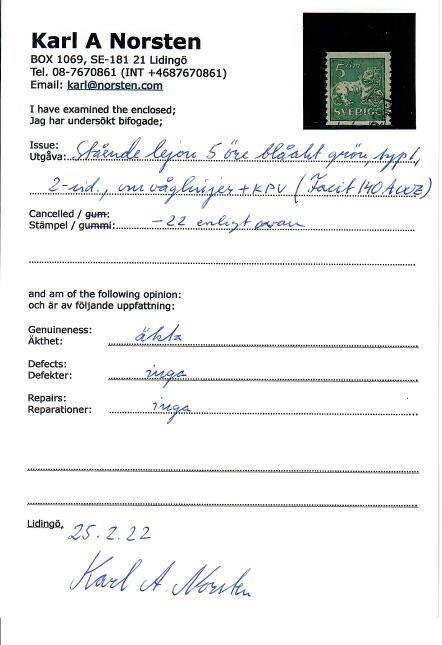 Karl A Norsten
BOX 1069, SE-181 21 Lidingö
Tel. 08-7670861 (INT +4687670861)
Email: karl@norsten.com
5 ÖRE
SVERIGE
I have examined the enclosed;
Jag har undersökt bifogade;
Issue:
Utgåva: Stående lejon 5 öre blåakt grön, typ1,
2-sid., vm våglinjer + KPV (Facit 140Acxz)
Cancelled / gum:
Stämpel / gummi: -22 enligt ovan
and am of the following opinion:
och är av följande uppfattning:
Genuineness:
Äkthet: äkta
Defects:
Defekter: inga
Repairs:
Reparationer: inga
Lidingö, 25.2.22
Karl A. Norsten